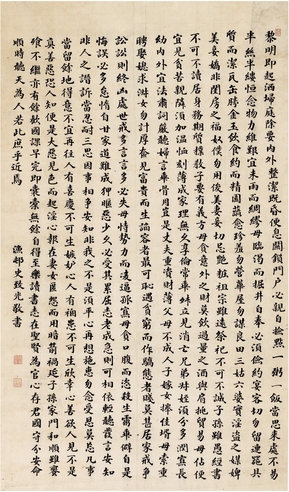 黎明即起洒埽庭除要内外整潔既昏便息關鎖門户必親自檢點一粥一飯當思来處不易
半絲半縷恒念物力維艱宜未雨而綢繆毋臨渴而掘井自奉必須儉約宴客切勿留連器具
質而潔瓦缶勝金玉飲食約而精園蔬愈珍羞勿營華屋勿謀良田三姑六婆實淫盜之媒婢
美妾嬌非閨房之福奴僕勿用俊美妻妾切忌艶粧祖宗雖遠祭祀不可不誠子孫雖愚經書
不可不讀居身務期質樸教子要有義方毋貪意外之財莫飲過量之酒與肩挑貿易毋佔便
宜見貧苦親隣須加温恤刻薄成家理無久享倫常乖舛立見消亡兄弟叔姪須分多潤寡長
幼内外宜法肅詞嚴聽婦言乖骨肉豈是丈夫重資財薄父母不成人子嫁女擇佳壻毋索重
聘娶媳求淑女勿計厚奩見富貴而生諂容者最可恥遇貧窮而作驕態者賤莫甚居家戒爭
訟訟則終凶處世戒多言言多必失毋恃勢力而凌逼孤寡毋貪口腹而恣殺生禽乖僻自是
悔誤必多怠惰自甘家道難成狎暱惡少久必受其累屈志老成急則可相依輕聽發言安知
非人之譖訴當忍耐三思因事相爭安知非我之不是須平心再想施惠勿念受恩莫忘凡事
當留餘地得意不宜再往人有喜慶不可生妒嫉心人有禍患不可生欣幸心善欲人見不是
真善惡恐人知便是大惡見色而起淫心報在妻女匿怨而用暗箭禍延子孫家門和順雖饔
飧不繼亦有餘歡國課早完即囊橐無餘自得至樂讀書志在聖賢為官心存君國守分安命
順時聽天為人若此庶乎近焉
漁邨史致光敬書